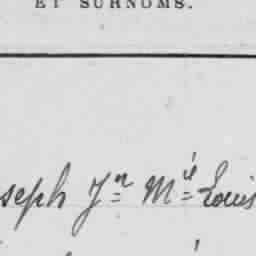 ET SURNOMS.
seph Jn Mie Louis